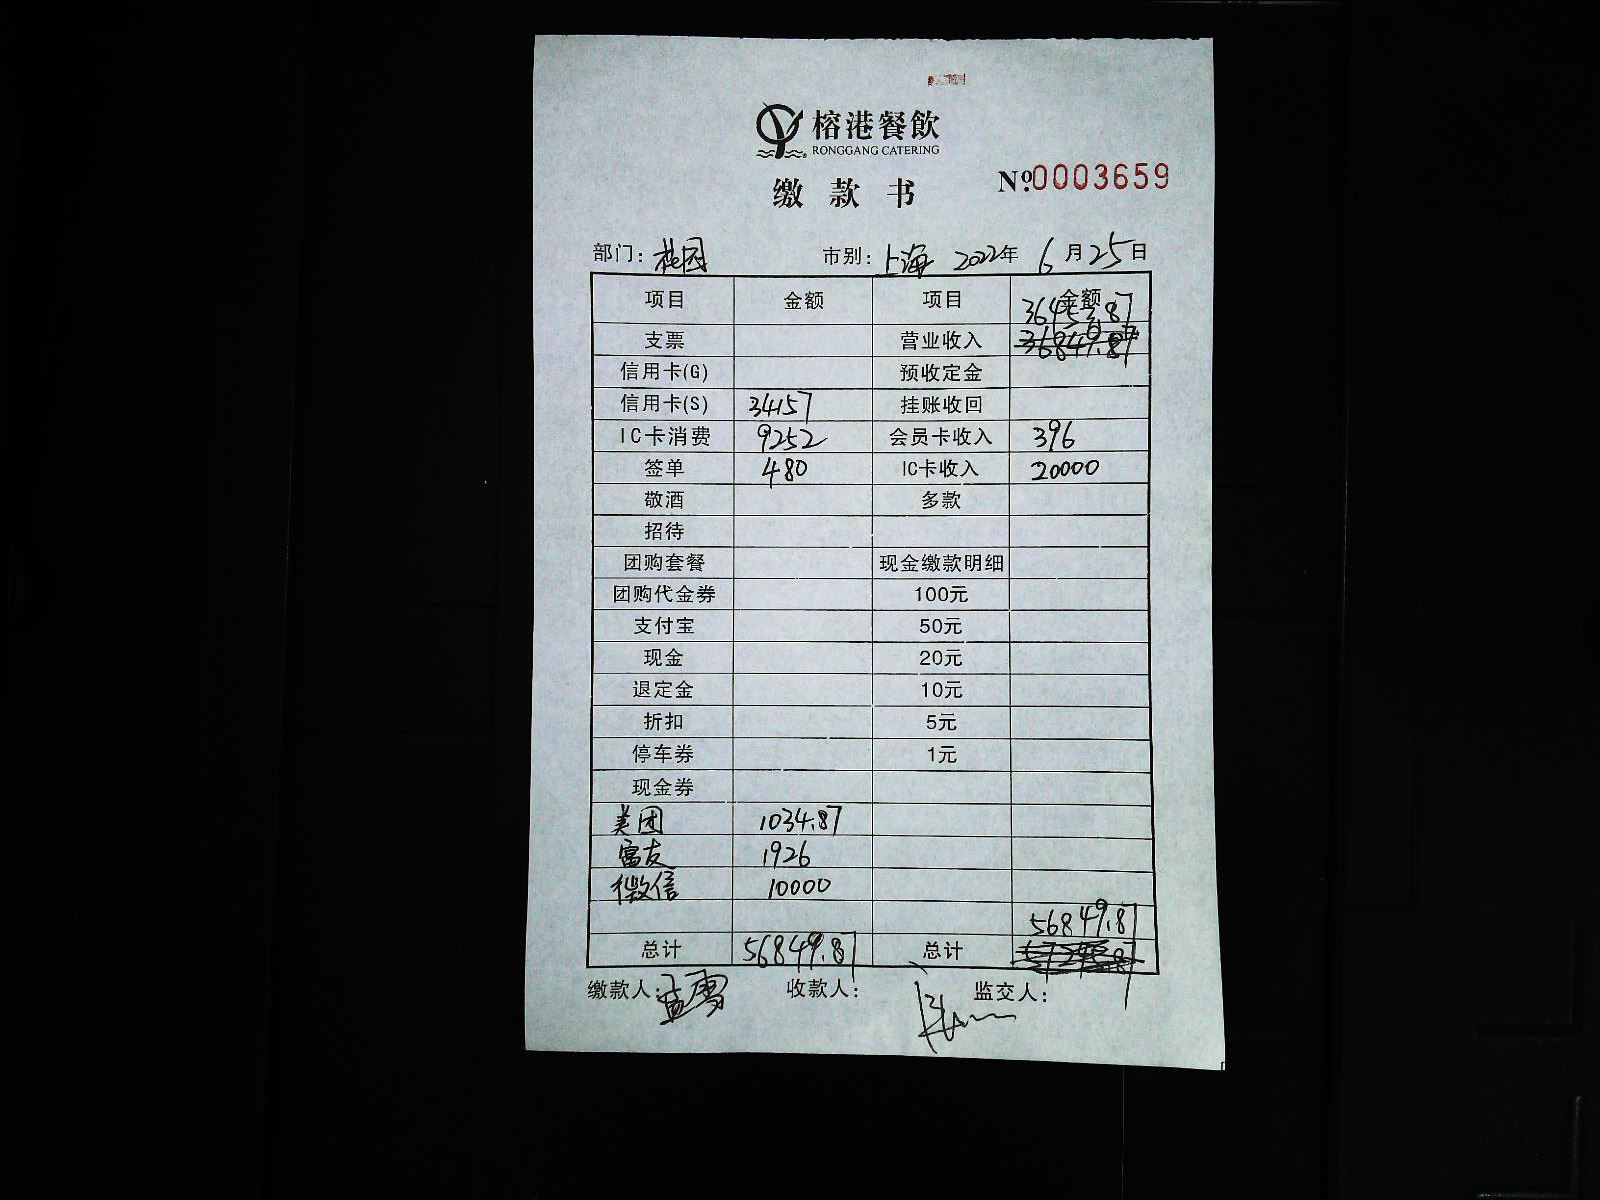 榕港餐飲
RONGGANG CATERING
缴款书
№0003659
部门：花园 市别：上海 2022年6月25日
项目 金额 项目 金额
36453.87
支票 营业收入
信用卡(G) 预收定金
信用卡(S) 34157 挂账收回
IC卡消费 9252 会员卡收入 396
签单 480 IC卡收入 20000
敬酒 多款
招待
团购套餐 现金缴款明细
团购代金券 100元
支付宝 50元
现金 20元
退定金 10元
折扣 5元
停车券 1元
现金券
美团 1034.87
富友 1926
微信 10000
56849.87
总计 56849.87 总计
缴款人：孟雪 收款人： 监交人：